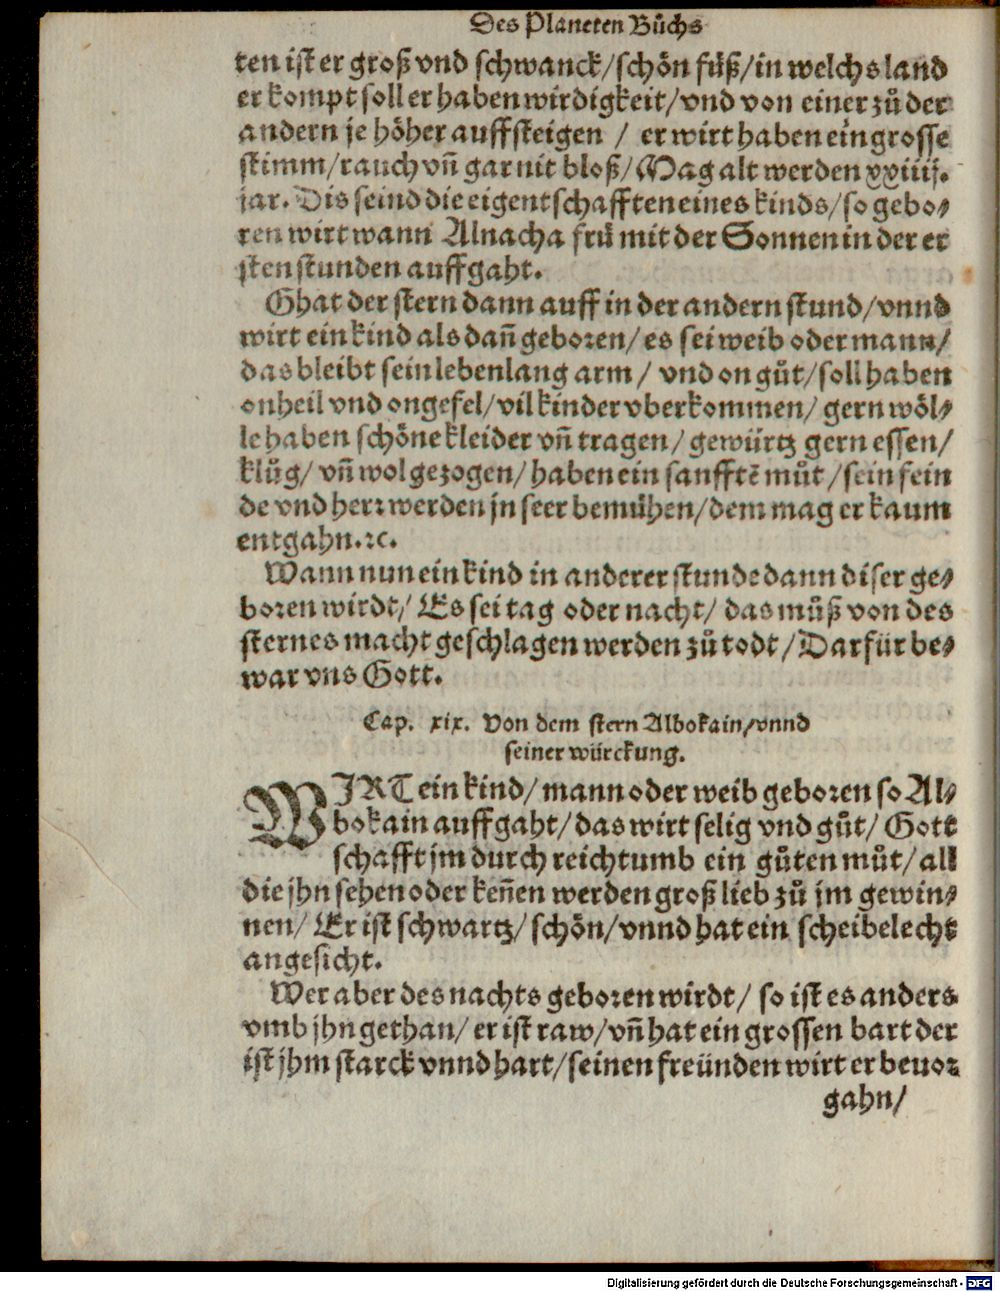 Des Planeten Bůchs
ten ist er groß vnd schwanck/schoͤn fuͤß/in welchs land
er kompt soll er haben wirdigkeit/vnd von einer zů der
andern je hoͤher auffsteigen / er wirt haben ein grosse
stimm/rauch vñ gar nit bloß/Mag alt werden xxiiij.
jar. Dis seind die eigentschafften eines kinds/so gebo⸗
ren wirt wann Alnacha fruͤ mit der Sonnen in der er
sten stunden auffgaht.
Ghat der stern dann auff in der andern stund/vnnd
wirt ein kind als dañ geboren/es sei weib oder mann/
das bleibt sein lebenlang arm/ vnd on gůt/soll haben
onheil vnd ongefel/vil kinder vberkommen/ gern woͤl⸗
le haben schoͤne kleider vñ tragen/ gewürtz gern essen/
klůg/ vñ wol gezogen/ haben ein sanfftẽ můt/sein fein
de vnd herꝛ werden jn seer bemuͤhen/dem mag er kaum
entgahn.ꝛc.
Wann nun ein kind in anderer stunde dann diser ge⸗
boren wirdt/ Es sei tag oder nacht/ das můß von des
sternes macht geschlagen werden zů todt/Darfür be⸗
war vns Gott.
Cap. xix. Von dem stern Albokain/vnnd
seiner würckung.
WIRT ein kind/ mann oder weib geboren so Al⸗
bokain auffgaht/das wirt selig vnd gůt/ Gott
schafft jm durch reichtumb ein gůten můt/all
die jhn sehen oder keñen werden groß lieb zů jm gewin⸗
nen/ Er ist schwartz/ schoͤn/vnnd hat ein scheibelecht
angesicht.
Wer aber des nachts geboren wirdt/ so ist es anders
vmb jhn gethan/ er ist raw/vñ hat ein grossen bart der
ist jhm starck vnnd hart/seinen freünden wirt er beuor
gahn/
Digitalisierung gefördert durch die Deutsche Forschungsgemeinschaft - DFG